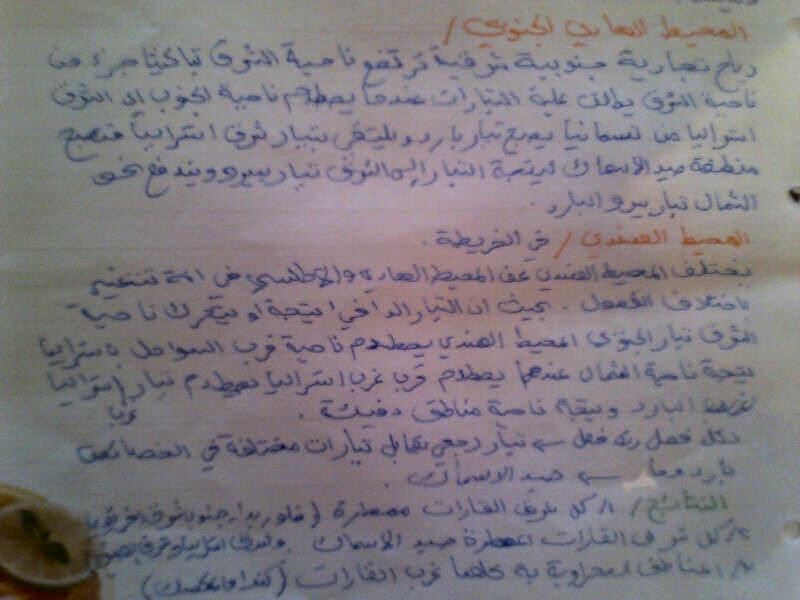 المحيط الهادي الجنوبي /
رياح تجارية جنوبية شرقية ترتفع ناحية الشرق جزء من
ناحية الشرق يطلق عليه التيارات عندما يصطدم ناحية الجنوب إلى الشرق
استراليا من تسمانيا يصبح تيار بارد ويلتقي بتيار شرق استراليا فتصبح
منطقة صيد الاسماك ليتجة التيار إلى الشرق تيار بيرو ويندفع نحو
الشمال تيار بيرو البارد .
المحيط الهندي / في الخريطة .
يختلف المحيط الهندي عن المحيط الهادي والاطلسي في انة تتغير
باختلاف الفصول . بحيث ان التيار الدافي يتجة او يتحرك ناحية
الشرق تيار الجنوبي المحيط الهندي يصطدم ناحية قرب السواحل باستراليا
يتجة ناحية الشمال عندما يصطدم قرب غرب استراليا يصطدم تيار استراليا
البارد ويتجة ناحية مناطق دفيئة .
لكل فصل تيار رجعي تقابل تيارات مختلفة في الخصائص
بارد وما صيد الاسماك .
النتائج / ١/ كل شرق القارات ممطرة ( فلوريدا، جنوب شرق افريقيا
٢/ كل شرق القارات ممطرة صيد الاسماك
٣/ المناطق الصحراوية كلها غرب القارات (